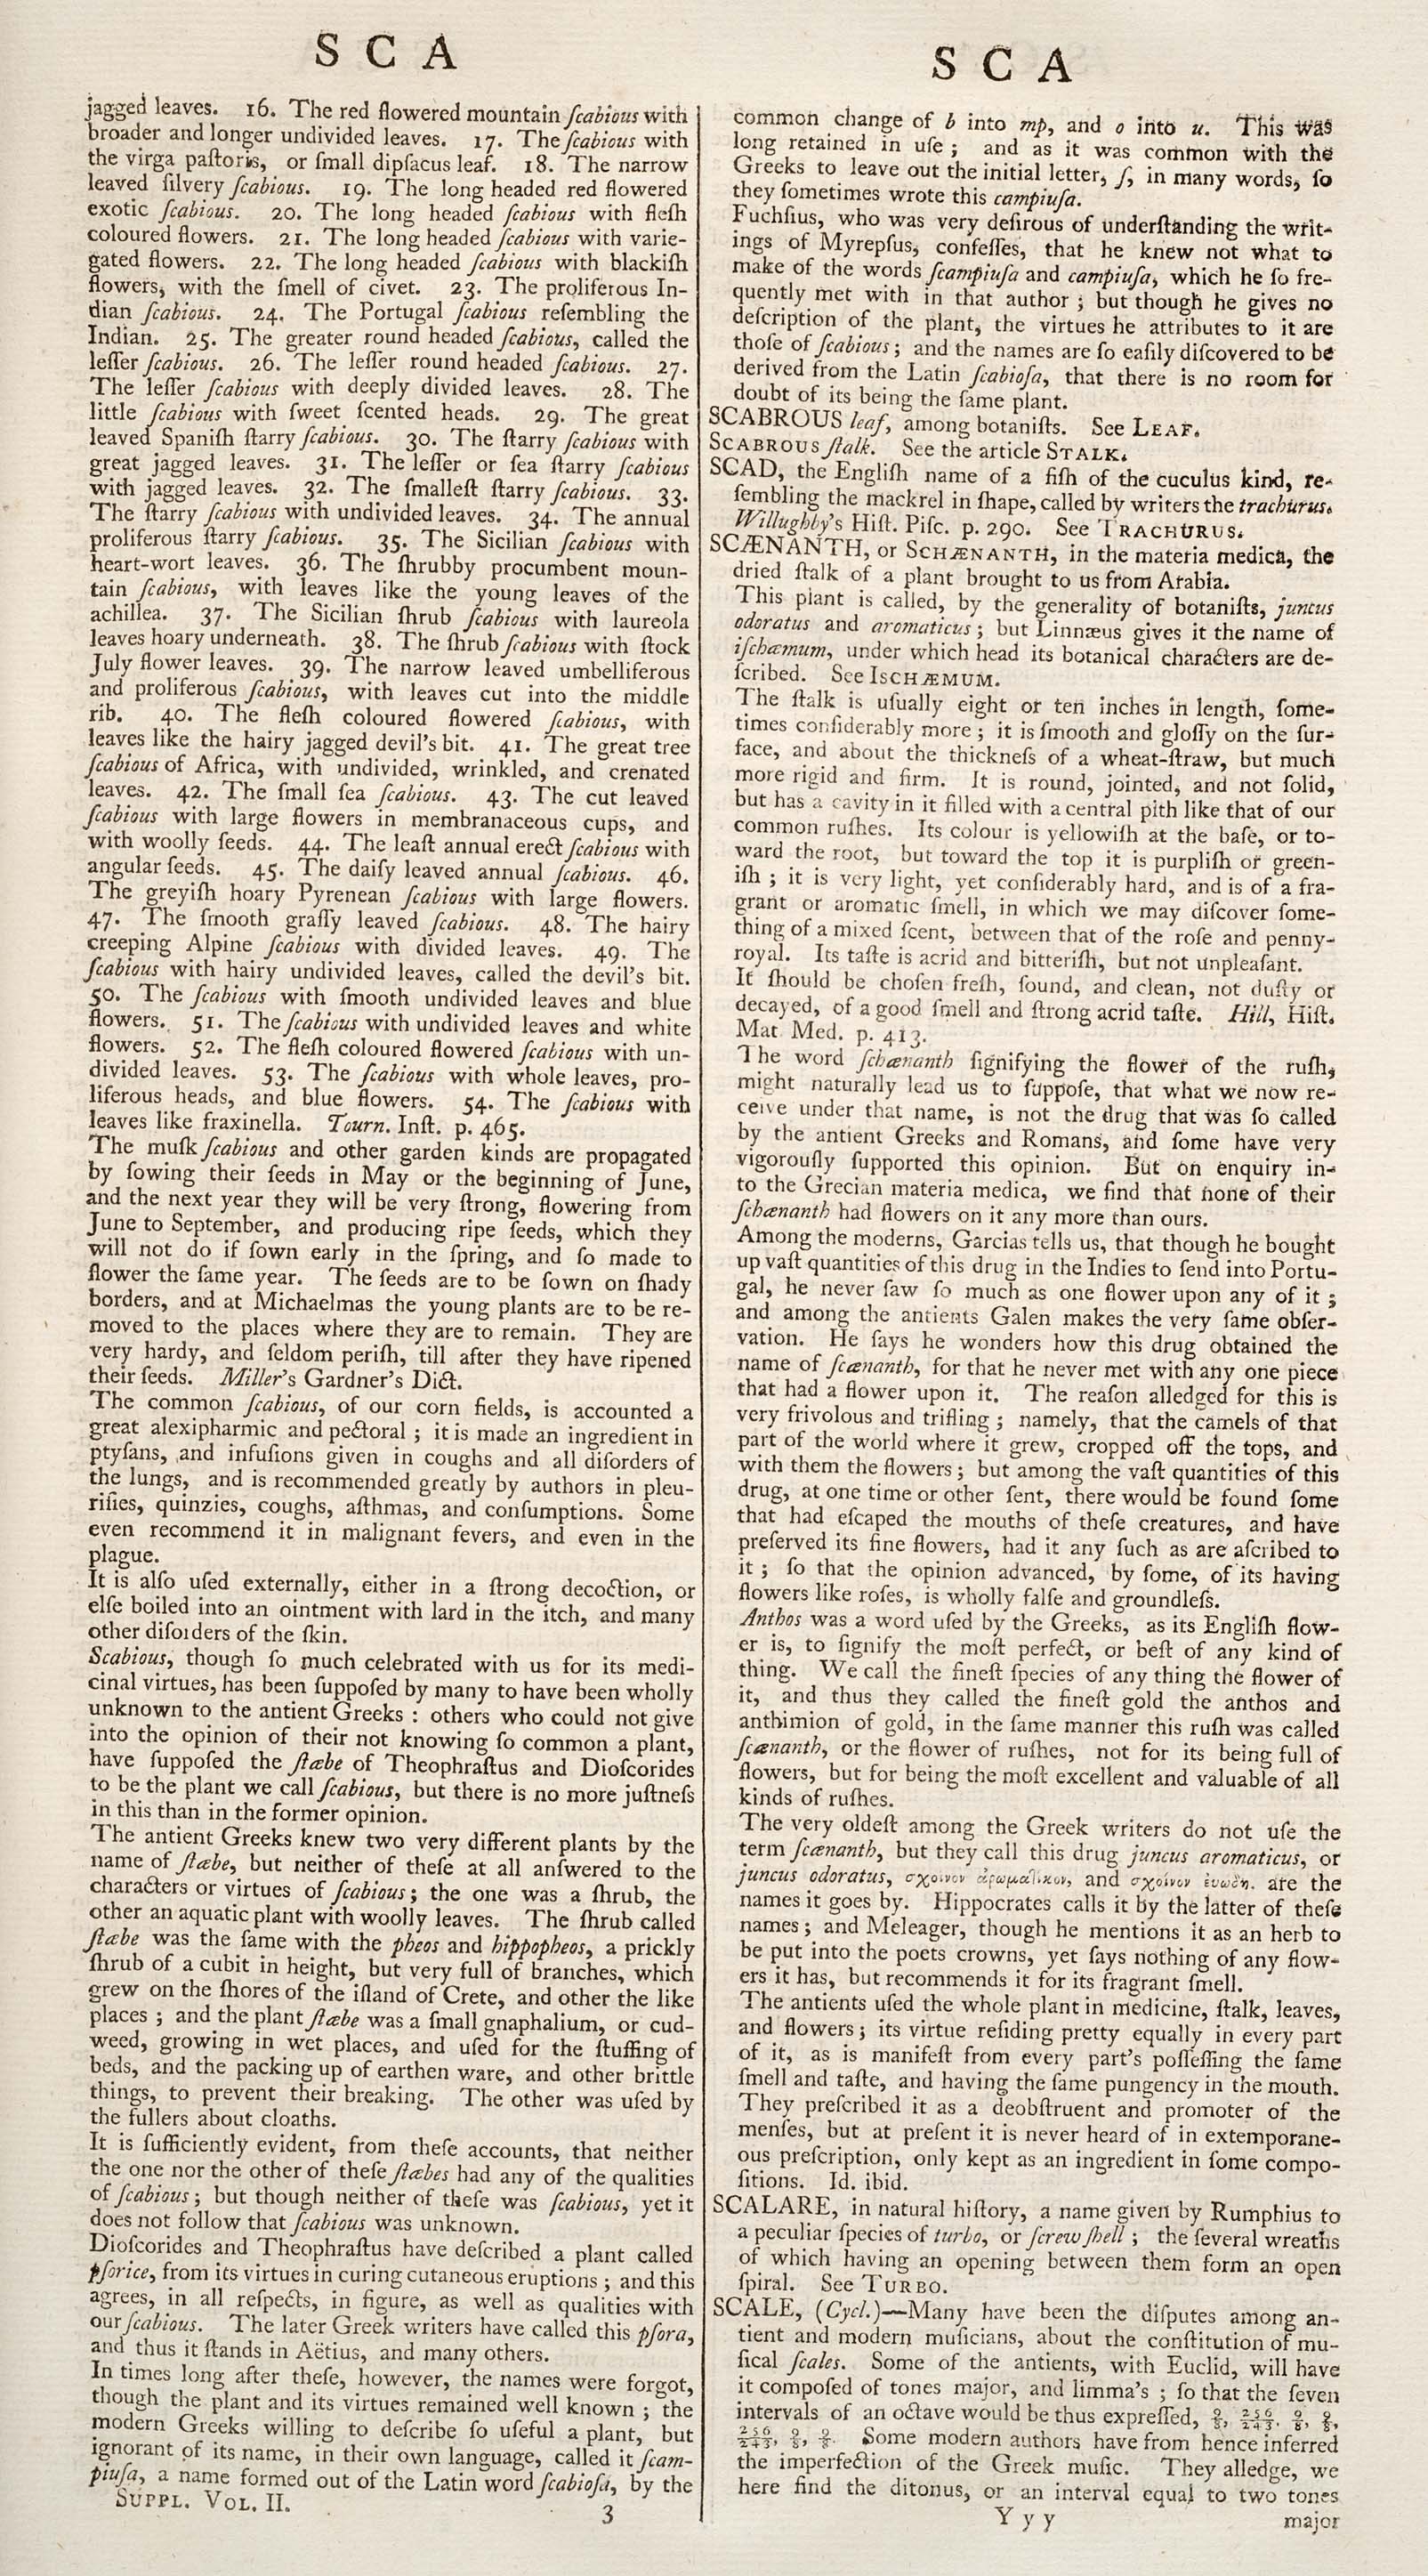 S C A
jagged leaves. 16. The red flowered mountain ſcabious with
broader and longer undivided leaves. 17. The ſcabious with
the virga paſtoris, or ſmall dipſacus leaf. 18. The narrow
leaved ſilvery ſcabious. 19. The long headed red flowered
exotic ſcabious. 20. The long headed ſcabious with fleſh
coloured flowers. 21. The long headed ſcabious with varie-
gated flowers. 22. The long headed ſcabious with blackiſh
flowers, with the ſmell of civet. 23. The proliferous In-
dian ſcabious. 24. The Portugal ſcabious reſembling the
Indian. 25. The greater round headed ſcabious, called the
leſſer ſcabious. 26. The leſſer round headed ſcabious. 27.
The leſſer ſcabious with deeply divided leaves. 28. The
little ſcabious with ſweet ſcented heads. 29. The great
leaved Spaniſh ſtarry ſcabious. 30. The ſtarry ſcabious with
great jagged leaves. 31. The leſſer or ſea ſtarry ſcabious
with jagged leaves. 32. The ſmalleſt ſtarry ſcabious. 33.
The ſtarry ſcabious with undivided leaves. 34. The annual
proliferous ſtarry ſcabious. 35. The Sicilian ſcabious with
heart-wort leaves. 36. The ſhrubby procumbent moun-
tain ſcabious, with leaves like the young leaves of the
achillea. 37. The Sicilian ſhrub ſcabious with laureola
leaves hoary underneath. 38. The ſhrub ſcabious with ſtock
July flower leaves. 39. The narrow leaved umbelliferous
and proliferous ſcabious, with leaves cut into the middle
rib. 40. The fleſh coloured flowered ſcabious, with
leaves like the hairy jagged devil's bit. 41. The great tree
ſcabious of Africa, with undivided, wrinkled, and crenated
leaves. 42. The ſmall ſea ſcabious. 43. The cut leaved
ſcabious with large flowers in membranaceous cups, and
with woolly ſeeds. 44. The leaſt annual erect ſcabious with
angular ſeeds. 45. The daiſy leaved annual ſcabious. 46.
The greyiſh hoary Pyrenean ſcabious with large flowers.
47. The ſmooth graſſy leaved ſcabious. 48. The hairy
creeping Alpine ſcabious with divided leaves. 49. The
ſcabious with hairy undivided leaves, called the devil's bit.
50. The ſcabious with ſmooth undivided leaves and blue
flowers. 51. The ſcabious with undivided leaves and white
flowers. 52. The fleſh coloured flowered ſcabious with un-
divided leaves. 53. The ſcabious with whole leaves, pro-
liferous heads, and blue flowers. 54. The ſcabious with
leaves like fraxinella. Tourn. Inſt. p. 465.
The muſk ſcabious and other garden kinds are propagated
by ſowing their ſeeds in May or the beginning of June,
and the next year they will be very ſtrong, flowering from
June to September, and producing ripe ſeeds, which they
will not do if ſown early in the ſpring, and ſo made to
flower the ſame year. The ſeeds are to be ſown on ſhady
borders, and at Michaelmas the young plants are to be re-
moved to the places where they are to remain. They are
very hardy, and ſeldom periſh, till after they have ripened
their ſeeds. Miller's Gardner's Dict.
The common ſcabious, of our corn fields, is accounted a
great alexipharmic and pectoral ; it is made an ingredient in
ptyſans, and infuſions given in coughs and all diſorders of
the lungs, and is recommended greatly by authors in pleu-
riſies, quinzies, coughs, aſthmas, and conſumptions. Some
even recommend it in malignant fevers, and even in the
plague.
It is alſo uſed externally, either in a ſtrong decoction, or
elſe boiled into an ointment with lard in the itch, and many
other diſorders of the ſkin.
Scabious, though ſo much celebrated with us for its medi-
cinal virtues, has been ſuppoſed by many to have been wholly
unknown to the antient Greeks : others who could not give
into the opinion of their not knowing ſo common a plant,
have ſuppoſed the ſtæbe of Theophraſtus and Dioſcorides
to be the plant we call ſcabious, but there is no more juſtneſs
in this than in the former opinion.
The antient Greeks knew two very different plants by the
name of ſtæbe, but neither of theſe at all anſwered to the
characters or virtues of ſcabious ; the one was a ſhrub, the
other an aquatic plant with woolly leaves. The ſhrub called
ſtæbe was the ſame with the pheos and hippopheos, a prickly
ſhrub of a cubit in height, but very full of branches, which
grew on the ſhores of the iſland of Crete, and other the like
places ; and the plant ſtæbe was a ſmall gnaphalium, or cud-
weed, growing in wet places, and uſed for the ſtuffing of
beds, and the packing up of earthen ware, and other brittle
things, to prevent their breaking. The other was uſed by
the fullers about cloaths.
It is ſufficiently evident, from theſe accounts, that neither
the one nor the other of theſe ſtæbes had any of the qualities
of ſcabious ; but though neither of theſe was ſcabious, yet it
does not follow that ſcabious was unknown.
Dioſcorides and Theophraſtus have deſcribed a plant called
pſorice, from its virtues in curing cutaneous eruptions ; and this
agrees, in all reſpects, in figure, as well as qualities with
our ſcabious. The later Greek writers have called this pſora,
and thus it ſtands in Aëtius, and many others.
In times long after theſe, however, the names were forgot,
though the plant and its virtues remained well known ; the
modern Greeks willing to deſcribe ſo uſeful a plant, but
ignorant of its name, in their own language, called it ſcam-
piuſa, a name formed out of the Latin word ſcabioſa, by the
SUPPL. VOL. II.
3
S C A
common change of b into mp, and o into u. This was
long retained in uſe ; and as it was common with the
Greeks to leave out the initial letter, ſ, in many words, ſo
they ſometimes wrote this campiuſa.
Fuchſius, who was very deſirous of underſtanding the writ-
ings of Myrepſus, confeſſes, that he knew not what to
make of the words ſcampiuſa and campiuſa, which he ſo fre-
quently met with in that author ; but though he gives no
deſcription of the plant, the virtues he attributes to it are
thoſe of ſcabious ; and the names are ſo eaſily diſcovered to be
derived from the Latin ſcabioſa, that there is no room for
doubt of its being the ſame plant.
SCABROUS leaf, among botaniſts. See LEAF.
SCABROUS ſtalk. See the article STALK.
SCAD, the Engliſh name of a fiſh of the cuculus kind, re-
ſembling the mackrel in ſhape, called by writers the trachurus.
Willughby's Hiſt. Piſc. p. 290. See TRACHURUS.
SCÆNANTH, or SCHÆNANTH, in the materia medica, the
dried ſtalk of a plant brought to us from Arabia.
This plant is called, by the generality of botaniſts, juncus
odoratus and aromaticus ; but Linnæus gives it the name of
iſchæmum, under which head its botanical characters are de-
ſcribed. See ISCHÆMUM.
The ſtalk is uſually eight or ten inches in length, ſome-
times conſiderably more ; it is ſmooth and gloſſy on the ſur-
face, and about the thickneſs of a wheat-ſtraw, but much
more rigid and firm. It is round, jointed, and not ſolid,
but has a cavity in it filled with a central pith like that of our
common ruſhes. Its colour is yellowiſh at the baſe, or to-
ward the root, but toward the top it is purpliſh or green-
iſh ; it is very light, yet conſiderably hard, and is of a fra-
grant or aromatic ſmell, in which we may diſcover ſome-
thing of a mixed ſcent, between that of the roſe and penny-
royal. Its taſte is acrid and bitteriſh, but not unpleaſant.
It ſhould be choſen freſh, ſound, and clean, not duſty or
decayed, of a good ſmell and ſtrong acrid taſte. Hill, Hiſt.
Mat. Med. p. 413.
The word ſchænanth ſignifying the flower of the ruſh,
might naturally lead us to ſuppoſe, that what we now re-
ceive under that name, is not the drug that was ſo called
by the antient Greeks and Romans, and ſome have very
vigorouſly ſupported this opinion. But on enquiry in-
to the Grecian materia medica, we find that none of their
ſchænanth had flowers on it any more than ours.
Among the moderns, Garcias tells us, that though he bought
up vaſt quantities of this drug in the Indies to ſend into Portu-
gal, he never ſaw ſo much as one flower upon any of it ;
and among the antients Galen makes the very ſame obſer-
vation. He ſays he wonders how this drug obtained the
name of ſcænanth, for that he never met with any one piece
that had a flower upon it. The reaſon alledged for this is
very frivolous and trifling ; namely, that the camels of that
part of the world where it grew, cropped off the tops, and
with them the flowers ; but among the vaſt quantities of this
drug, at one time or other ſent, there would be found ſome
that had eſcaped the mouths of theſe creatures, and have
preſerved its fine flowers, had it any ſuch as are aſcribed to
it ; ſo that the opinion advanced, by ſome, of its having
flowers like roſes, is wholly falſe and groundleſs.
Anthos was a word uſed by the Greeks, as its Engliſh flow-
er is, to ſignify the moſt perfect, or beſt of any kind of
thing. We call the fineſt ſpecies of any thing the flower of
it, and thus they called the fineſt gold the anthos and
anthimion of gold, in the ſame manner this ruſh was called
ſcænanth, or the flower of ruſhes, not for its being full of
flowers, but for being the moſt excellent and valuable of all
kinds of ruſhes.
The very oldeſt among the Greek writers do not uſe the
term ſcænanth, but they call this drug juncus aromaticus, or
juncus odoratus, σχοινον ἀρωμαλικον, and σχοίνον ἐυωδη. are the
names it goes by. Hippocrates calls it by the latter of theſe
names ; and Meleager, though he mentions it as an herb to
be put into the poets crowns, yet ſays nothing of any flow-
ers it has, but recommends it for its fragrant ſmell.
The antients uſed the whole plant in medicine, ſtalk, leaves,
and flowers ; its virtue reſiding pretty equally in every part
of it, as is manifeſt from every part's poſſeſſing the ſame
ſmell and taſte, and having the ſame pungency in the mouth.
They preſcribed it as a deobſtruent and promoter of the
menſes, but at preſent it is never heard of in extemporane-
ous preſcription, only kept as an ingredient in ſome compo-
ſitions. Id. ibid.
SCALARE, in natural hiſtory, a name given by Rumphius to
a peculiar ſpecies of turbo, or ſcrew ſhell ; the ſeveral wreaths
of which having an opening between them form an open
ſpiral. See TURBO.
SCALE, (Cycl.)—Many have been the diſputes among an-
tient and modern muſicians, about the conſtitution of mu-
ſical ſcales. Some of the antients, with Euclid, will have
it compoſed of tones major, and limma's ; ſo that the ſeven
intervals of an octave would be thus expreſſed, 9/8, 256/243. 9/8, 9/8,
256/243, 9/8, 9/8. Some modern authors have from hence inferred
the imperfection of the Greek muſic. They alledge, we
here find the ditonus, or an interval equal to two tones
Y y y
major